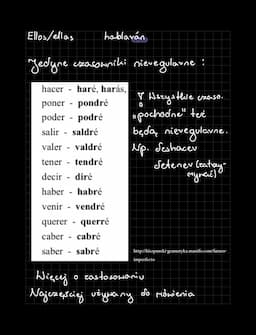 Ellos/ellas hablarán
Jedyne czasowniki nieregularne :
hacer - haré, harás,
poner - pondré
poder - podré
salir - saldré
valer - valdré
tener - tendré
decir - diré
haber - habré
venir - vendré
querer - querré
caber - cabré
saber - sabré
Wszystkie czaso.
"pochodne" też
będą nieregularne.
Np. Deshacer
Detener (zatrzy-
mywać)
Więcej o zastosowaniu
Najczęściej używany do mówienia